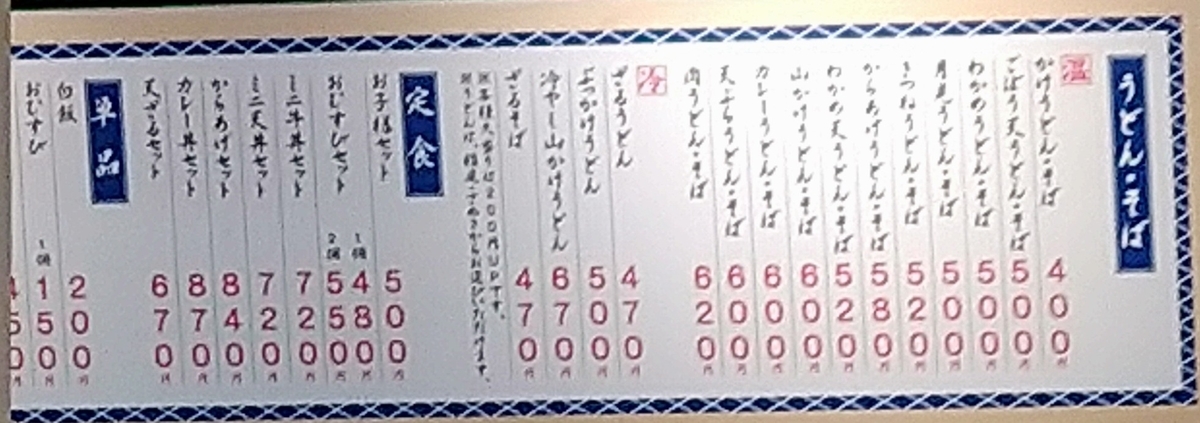 うどん・そば
温
かけうどん・そば 400円
ごぼう天うどん・そば 500円
わかめうどん・そば 500円
月見うどん・そば 500円
きつねうどん・そば 520円
からあげうどん・そば 580円
わかめ天うどん・そば 520円
山かけうどん・そば 600円
カレーうどん・そば 600円
天ぷらうどん・そば 600円
肉うどん・そば 620円
冷
ざるうどん 470円
ぶっかけうどん 500円
冷やし山かけうどん 670円
ざるそば 470円
※各種大盛りは200円UPです。
※うどんは、・さぬきからお選びいただけます。
定食
お子様セット 500円
おむすびセット 1個 480円
2個 550円
ミニ牛丼セット 720円
ミニ天丼セット 720円
からあげセット 840円
カレー丼セット 870円
天ざるセット 670円
単品
白飯 200円
おむすび 1個 150円